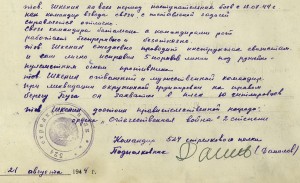 тов. Шкенин за весь период наступательных боев с 18.07.44 г.
как командир взвода связи с поставленной задачей
справлялся отлично.
связь командира батальона с командирами рот
работает бесперебойно и
тов. Шкенин ежедневно проводит инструктаж связистов
и сам лично исправил 5 порывов линии под ружейно-
пулеметным огнем противника.
тов Шкенин отважный и мужественный командир.
при ликвидации окруженной группировки на правом
берегу Буга он захватил в плен 10 гитлеровцев
тов. Шкенин достоин правительственной награды
ордена "Отечественная война" 2 степени
Командир 524 стрелкового полка
Подполковник
21 августа 1944 г.